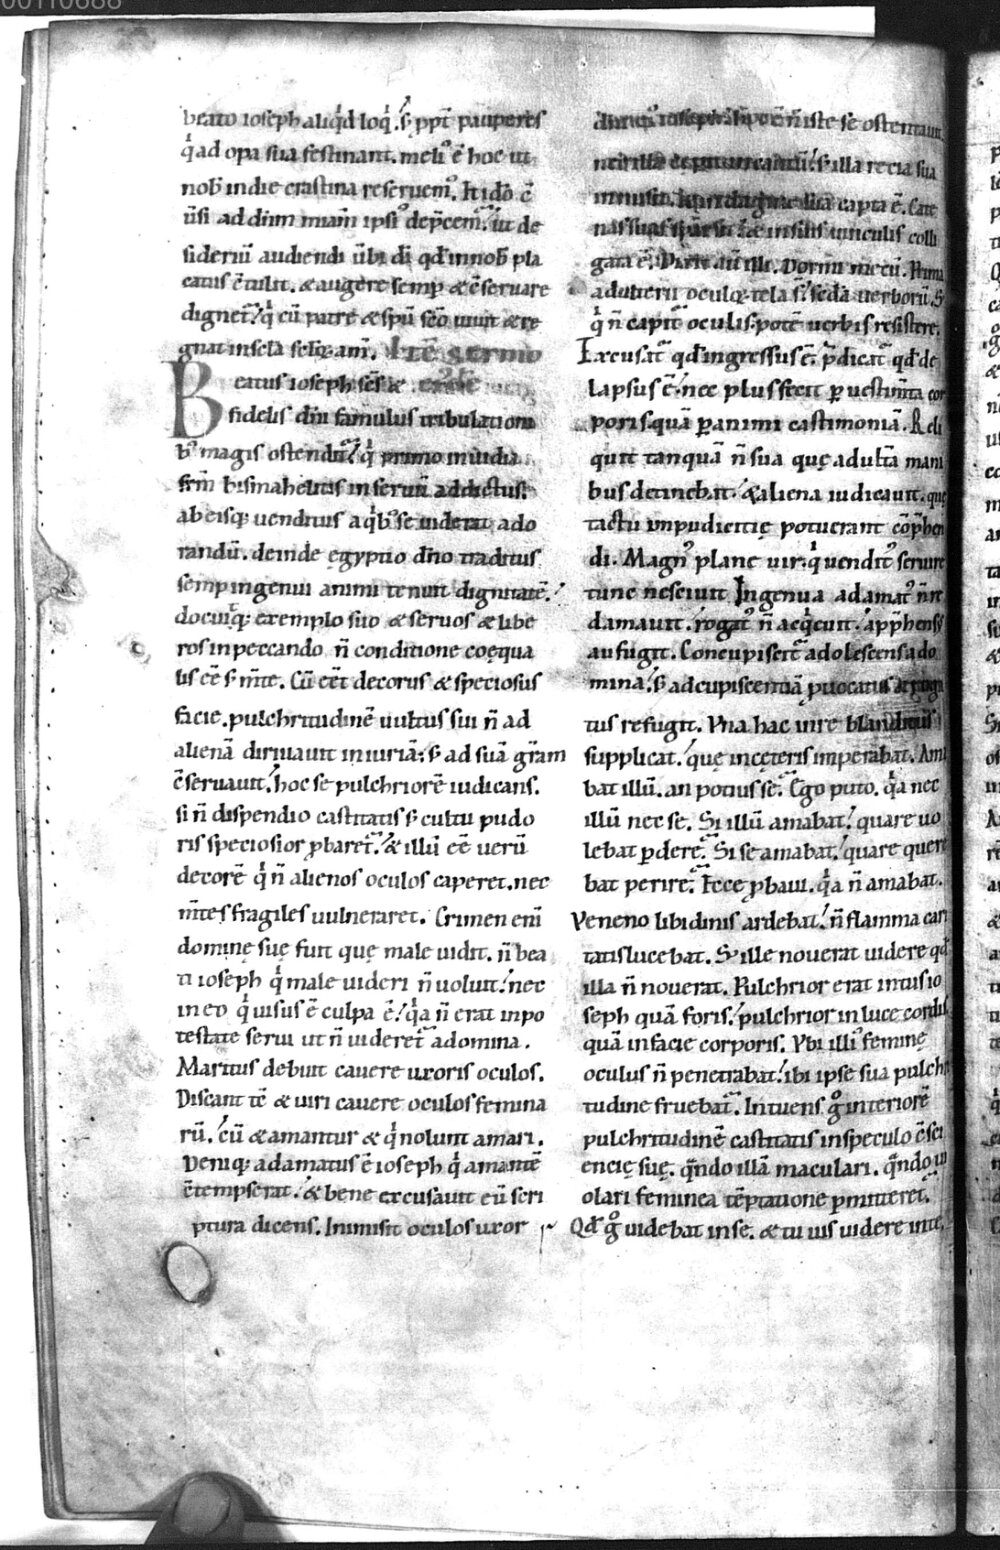 beato ioseph aliqͥd loqͥ. s; ppt̄ pauperes
qͥ ad opa sua festinant. meliꝰ ē hoc ut
nob̄ in die crastina reseruemꝰ. It idō ē
ūsi ad dn̄m miam̄ ipsiꝰ dep̄cem̄. ut de
sideriū audiendi ūbi di qd̄ in nob̄ pla
catus ētulit. & augere semp & ēseruare
dignet̄. qͥ cū patre & spū sc̄o uiuit & re
gnat in sc̄la sclꝝ am̄. Itē sermo
Beatus ioseph sc̄s &
fidelis dn̄i famulus tribulationi
bꝰ magis ostendit̄. qͥ primo inuidia
frm̄ hismahelitis in seruū addictus.
ab eisq; uenditus a qͥbꝰ se uiderat ado
randū. deinde ęgyptio dn̄o traditus
semp ingenui animi tenuit dignitatē.
docuitq; exemplo suo & seruos & libe
ros in peccando n̄ conditione coęqua
lis ēē s; m̄te. Cū eēt decorus & speciosus
facie. pulchritudinē uultus sui n̄ ad
alienā diriuauit iniuriā; s; ad suā gr̄am
ēseruauit. hoc se pulchriorē iudicans.
si n̄ dispendio castitatis s; cultu pudo
ris speciosior ꝓbaret̄. & illū eē uerū
decorē qͥ n̄ alienos oculos caperet. nec
m̄tes fragiles uulneraret. Crimen enī
dominę suę fuit quę male uidit. n̄ bea
ti ioseph qͥ male uideri n̄ uoluit. nec
in eo qͥ uisus ē culpa ē. qͣa n̄ erat in po
testate serui ut n̄ uideret̄ a domina.
Maritus debuit cauere uxoris oculos.
Discant tē & uiri cauere oculos femina
rū. cū & amantur & qͥ nolunt amari.
Deniq; adamatus ē ioseph qͥ amantē
ētempserat. & bene excusauit eū scri
ptura dicens. Inimisit oculos uxor
n̄ iste se ostentauit
s; illa recia sua
inmisit. capta ē. Cate
nas suas in suis uinculis colli
gata ē. Dixit aūt illi. Dormi mecū. Prima
adulterii oculoꝝ tela s̄. sedā uerborū. S;
qͥ n̄ capit̄ oculis. potē uerbis resistere.
Excusat̄ qd̄ ingressus ē. p̄dicat̄ qd̄ de
lapsus ē. nec plus fecit ꝑ uestimn̄ta cor
poris quā ꝑ animi castimoniā. Reli
quit tanquā n̄ sua quę adultā mani
bus detinebat̄. & aliena iudicauit. quę
tactu impudicitię potuerant cōp̄hen
di. Magnꝰ plane uir. qͥ uenditꝰ seruire
tunc nesciuit. Ingenua adamatꝰ n̄ re
damauit. rogatꝰ n̄ acqͥeuit. app̄hensꝰ
aufugit. Concupiscit̄ adolescens a do
mina. s; ad cupiscentiā puocatus
tus refugit. Vna hac uire blanditiis
supplicat. quę in cęteris imperabat. Ama
bat illū. an potius se. Ego puto. qͣa nec
illū nec se. Si illū amabat. quare uo
lebat ꝑdere. Si se amabat. quare quere
bat perire. Ecce ꝓbaui. qͣa n̄ amabat.
Veneno libidinis ardebat. n̄ flamma cari
tatis lucebat. S; ille nouerat uidere qd̄
illa n̄ nouerat. Pulchrior erat intus io
seph quā foris. pulchrior in luce cordis
quā in facie corporis. Vbi illiꝰ feminę
oculus n̄ penetrabat. ibi ipse sua pulchri
tudine fruebat̄. Intuens gͦ interiorē
pulchritudinē castitatis in speculo ēsci
encię suę. qn̄do illā maculari. qn̄do ui
olari feminea tēptatione ꝑmitteret.
Qd̄ gͦ uidebat in se. & tu uis uidere in te.